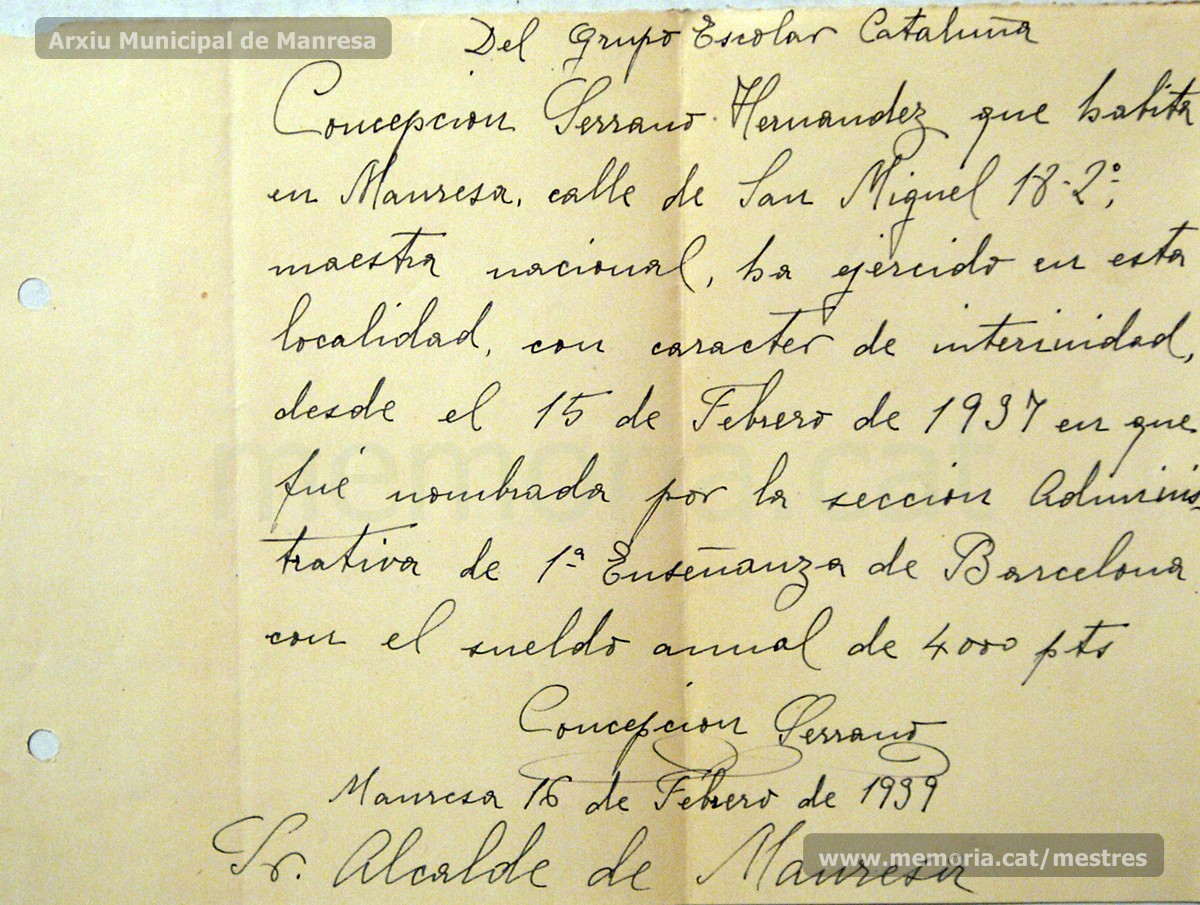 Arxiu Municipal de Manresa
Del Grupo Escolar Cataluña
Concepcion Serrano Hernandez que habita
en Manresa, calle de San Miguel 18-2º,
maestra nacional, ha ejercido en esta
localidad, con caracter de interinidad,
desde el 15 de Febrero de 1937 en que
fué nombrada por la seccion Adminis-
trativa de 1ª Enseñanza de Barcelona
con el sueldo anual de 4000 pts
Concepcion Serrano
Manresa 16 de Febrero de 1939
Sr. Alcalde de Manresa
www.memoria.cat/mestres
memoria.cat